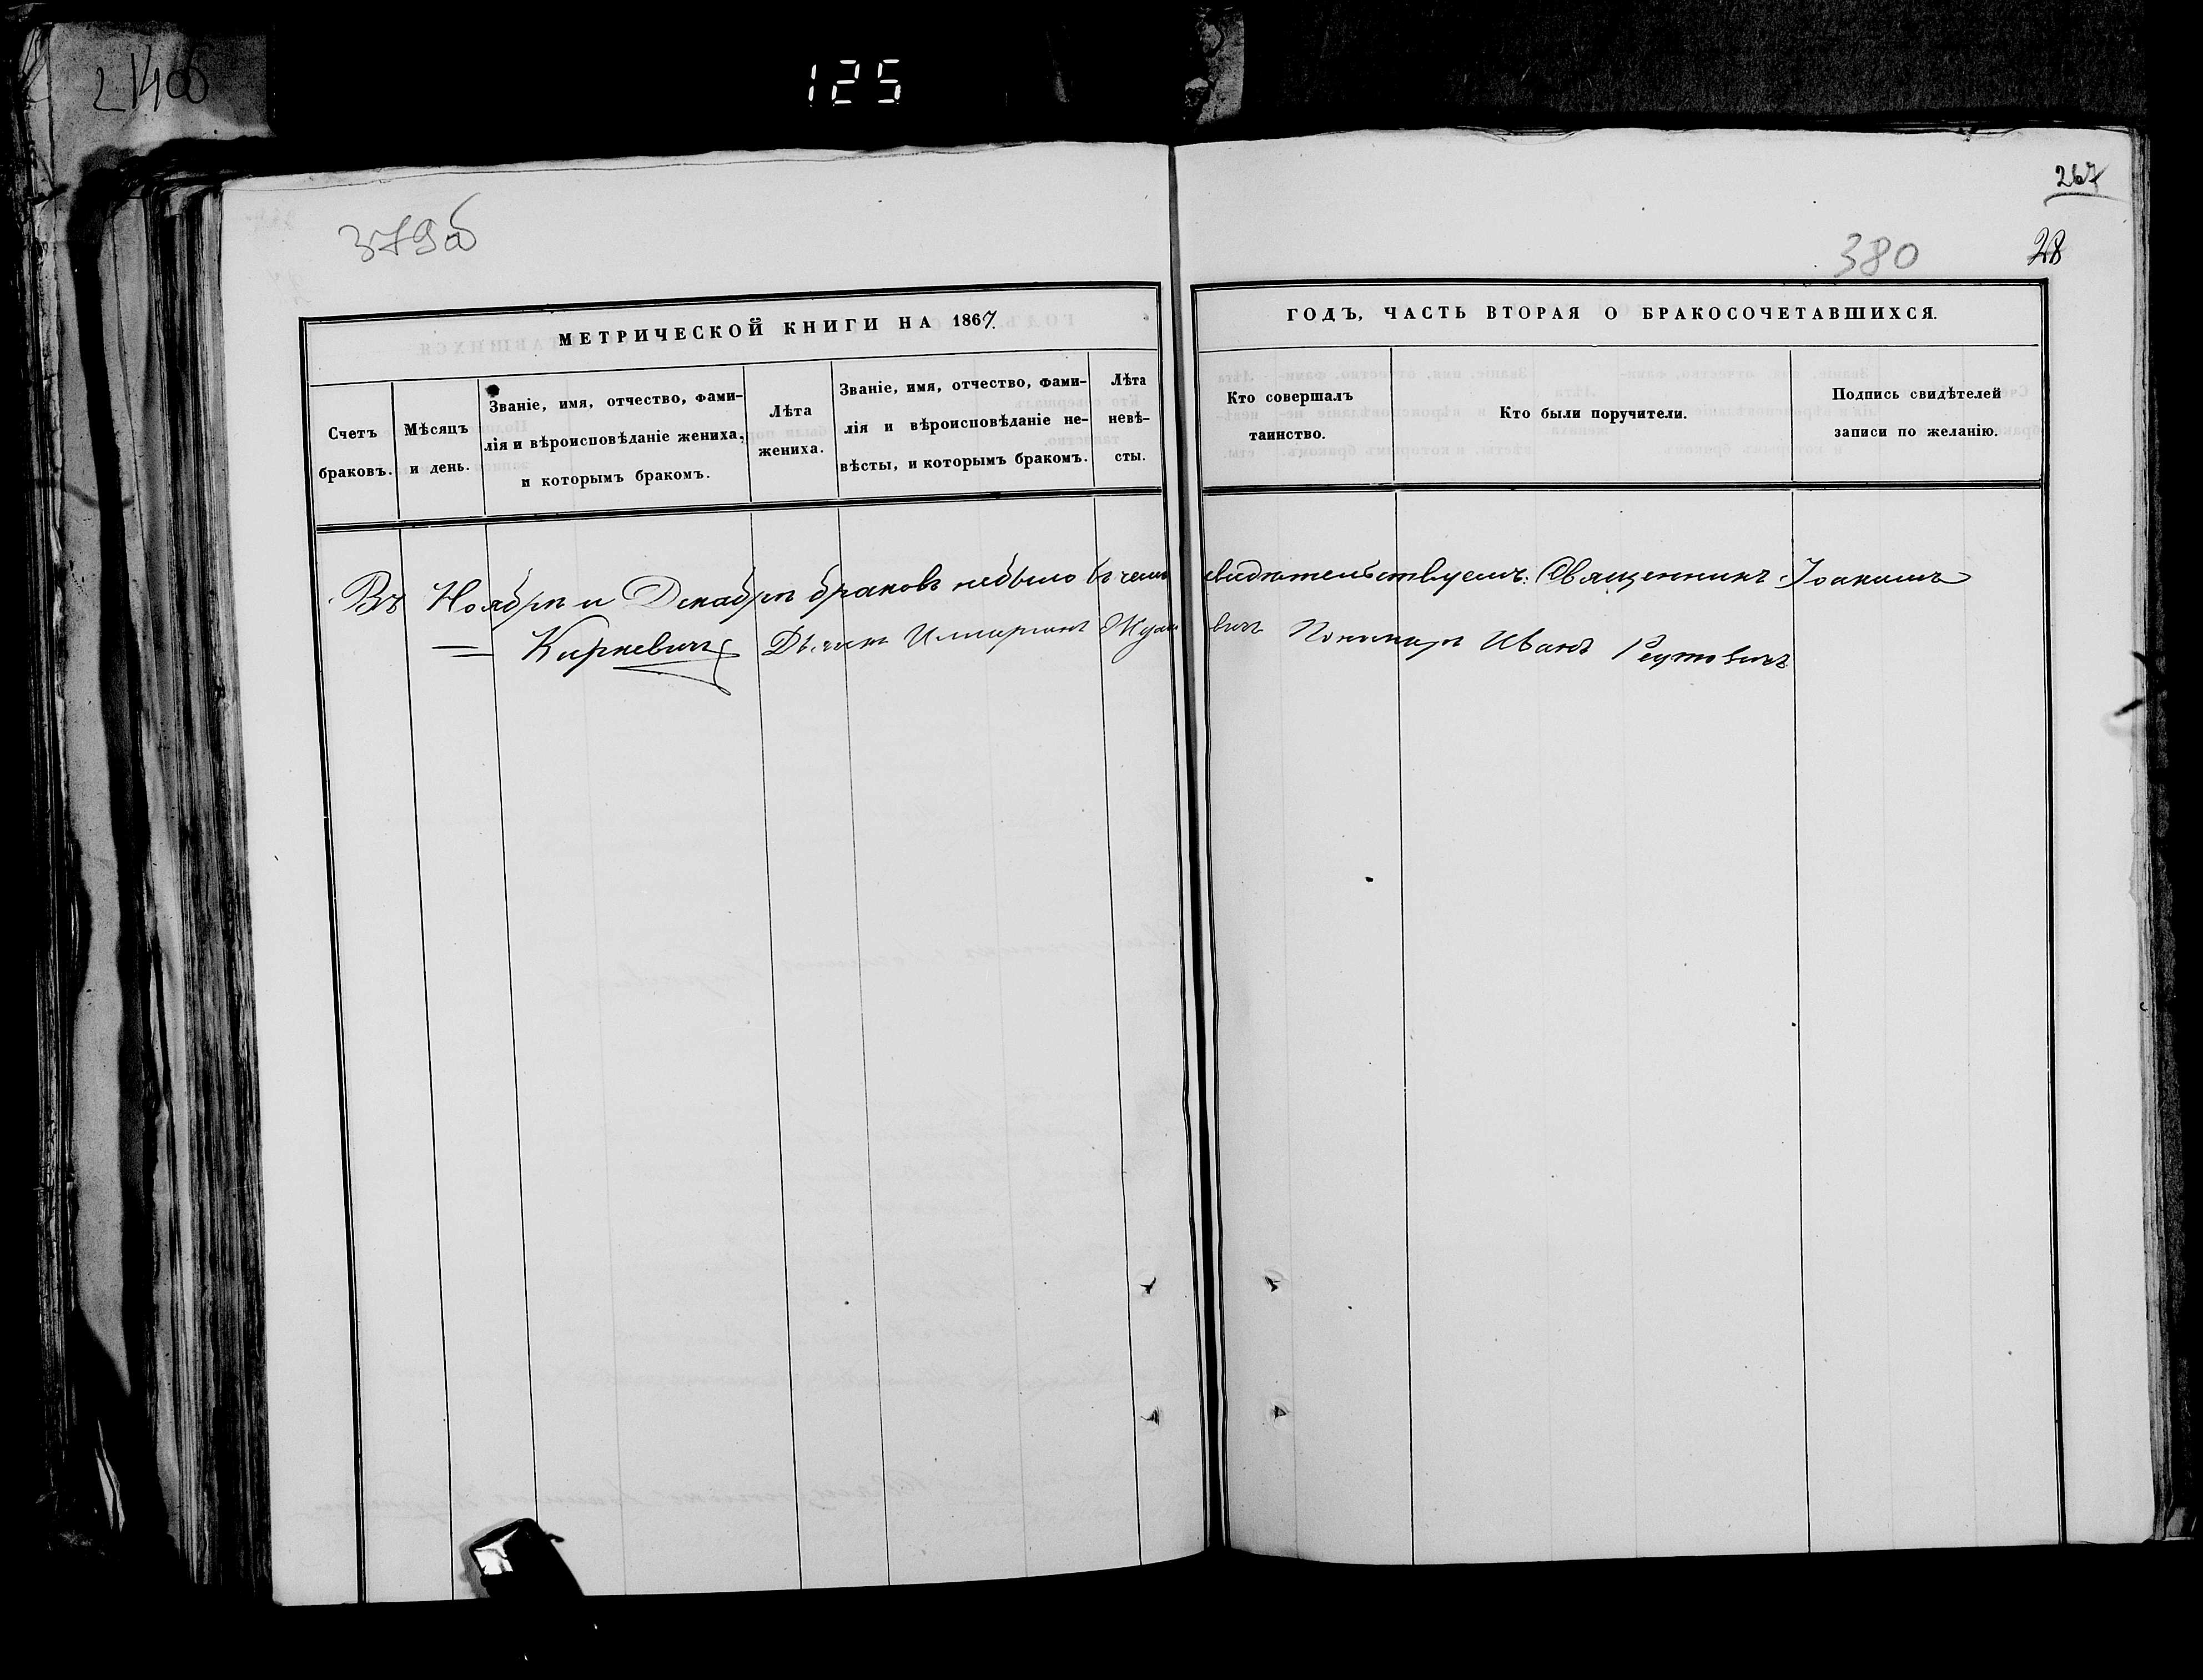 125
267
379об
380
28
МЕТРИЧЕСКОЙ КНИГИ НА 1867.
ГОДЪ, ЧАСТЬ ВТОРАЯ О БРАКОСОЧЕТАВШИХСЯ.
Счетъ
браковъ.
Мѣсяцъ
и день.
Званіе, имя, отчество, фами-
лія и вѣроисповѣданіе жениха,
и которымъ бракомъ.
Лѣта
жениха.
Званіе, имя, отчество, фами-
лія и вѣроисповѣданіе не-
вѣсты, и которымъ бракомъ.
Лѣта
невѣ-
сты.
Кто совершалъ
таинство.
Кто были поручители.
Подпись свидѣтелей
записи по желанію.
Въ Ноябрѣ и Декабрѣ браковъ небыло въ чемъ свидѣтельствуемъ: Священникъ Іоакимъ
Киркевичъ Дьячекъ Пономарь Иванъ Реутовичъ